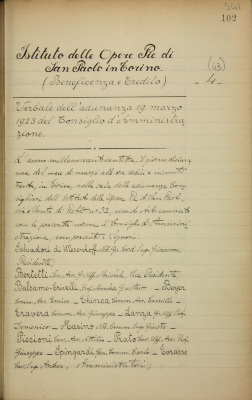 341
102
Istituto delle Opere Pie di
San Paolo in Torino.
(Beneficenza e Credito)
(43)
-4-
Verbale dell'adunanza 19 marzo
1923 del Consiglio d'Amministra
zione.
L'anno millenovecentoventitre, il giorno dician
nove del mese di marzo alle ore sedici e minuti
trenta, in Torino, nella sala delle adunanze Con
sigliari dell'Istituto delle Opere Pie di San Paolo,
via Monte di Pietà n. 32, essendo stato convocato
con le prescritte norme il Consiglio di Amministra
zione, sono presenti i Signori:
Salvadori di Wiesenhoff Giacomo,
Presidente,
Bertetti Michele, Vice Presidente,
Balsamo-Crivelli Gustavo - Bozer
Enrico - Chinea
Cravera Giuseppe - Lanza
Domenico - Marino
Piccioni Attilio - Prato
Giuseppe - Spingardi Carlo - Torasse
Andrea, Amministratori;